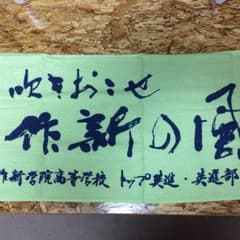 吹きおこせ
作新の風
作新学院高等学校 トップ英進・英進部